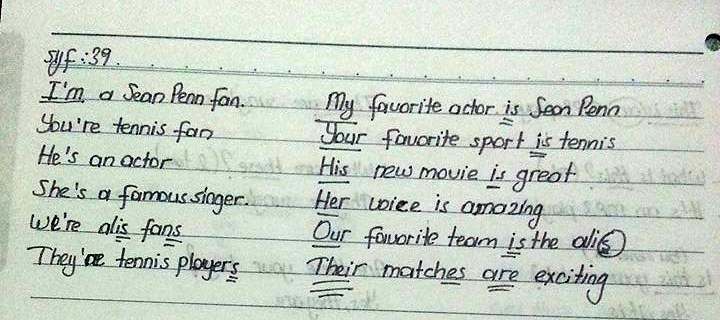 syf:39.
I'm a Sean Penn fan. My favorite actor is Sean Penn
You're tennis fan Your favorite sport is tennis
He's an actor His new movie is great
She's a famous singer. Her voice is amazing
We're alis fans Our favorite team is the alis
They're tennis players Their matches are exciting